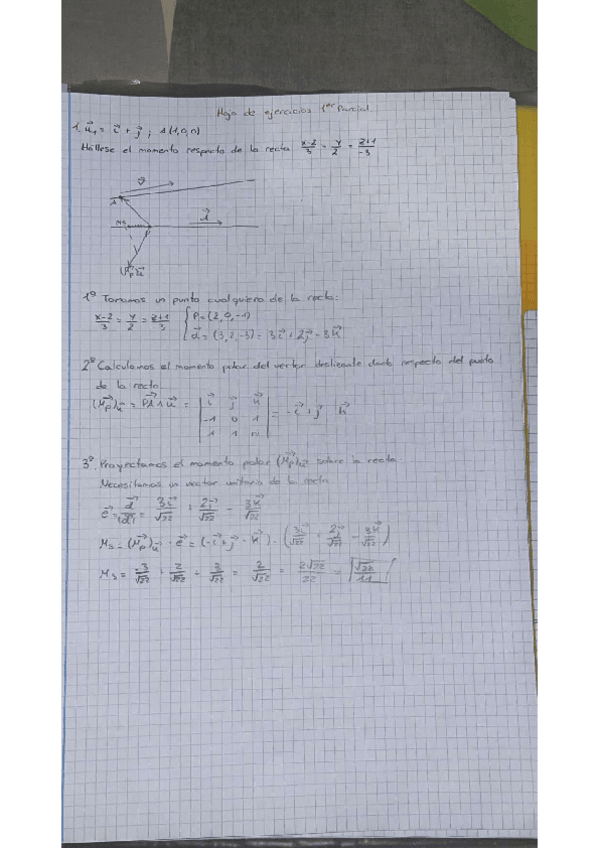 Hoja de ejercicios 1er Parcial
1. u⃗₁ = i⃗ + j⃗ ; A(1,0,0)
Hállese el momento respecto de la recta (x-2)/3 = y/2 = (z+1)/-3
A
Ms
P
(M⃗p)u⃗
1º Tomamos un punto cualquiera de la recta:
(x-2)/3 = y/2 = (z+1)/3 { P=(2,0,-1)
d⃗ = (3,2,-3) = 3i⃗ + 2j⃗ - 3k⃗
2º Calculamos el momento polar del vector deslizante dado respecto del punto
de la recta.
(M⃗p)u⃗ = PA⃗ ∧ u⃗ = | i⃗ j⃗ k⃗ | = -i⃗ + j⃗ k⃗
-1 0 1
1 1 0
3º Proyectamos el momento polar (M⃗p)u⃗ sobre la recta
Necesitamos un vector unitario de la recta
e⃗ = d⃗/|d⃗| = 3i⃗/√22 + 2j⃗/√22 - 3k⃗/√22
Ms = (M⃗p)u⃗ · e⃗ = (-i⃗ + j⃗ - k⃗) · (3i⃗/√22 + 2j⃗/√22 - 3k⃗/√22)
Ms = -3/√22 + 2/√22 + 3/√22 = 2/√22 = 2√22/22 = √22/11